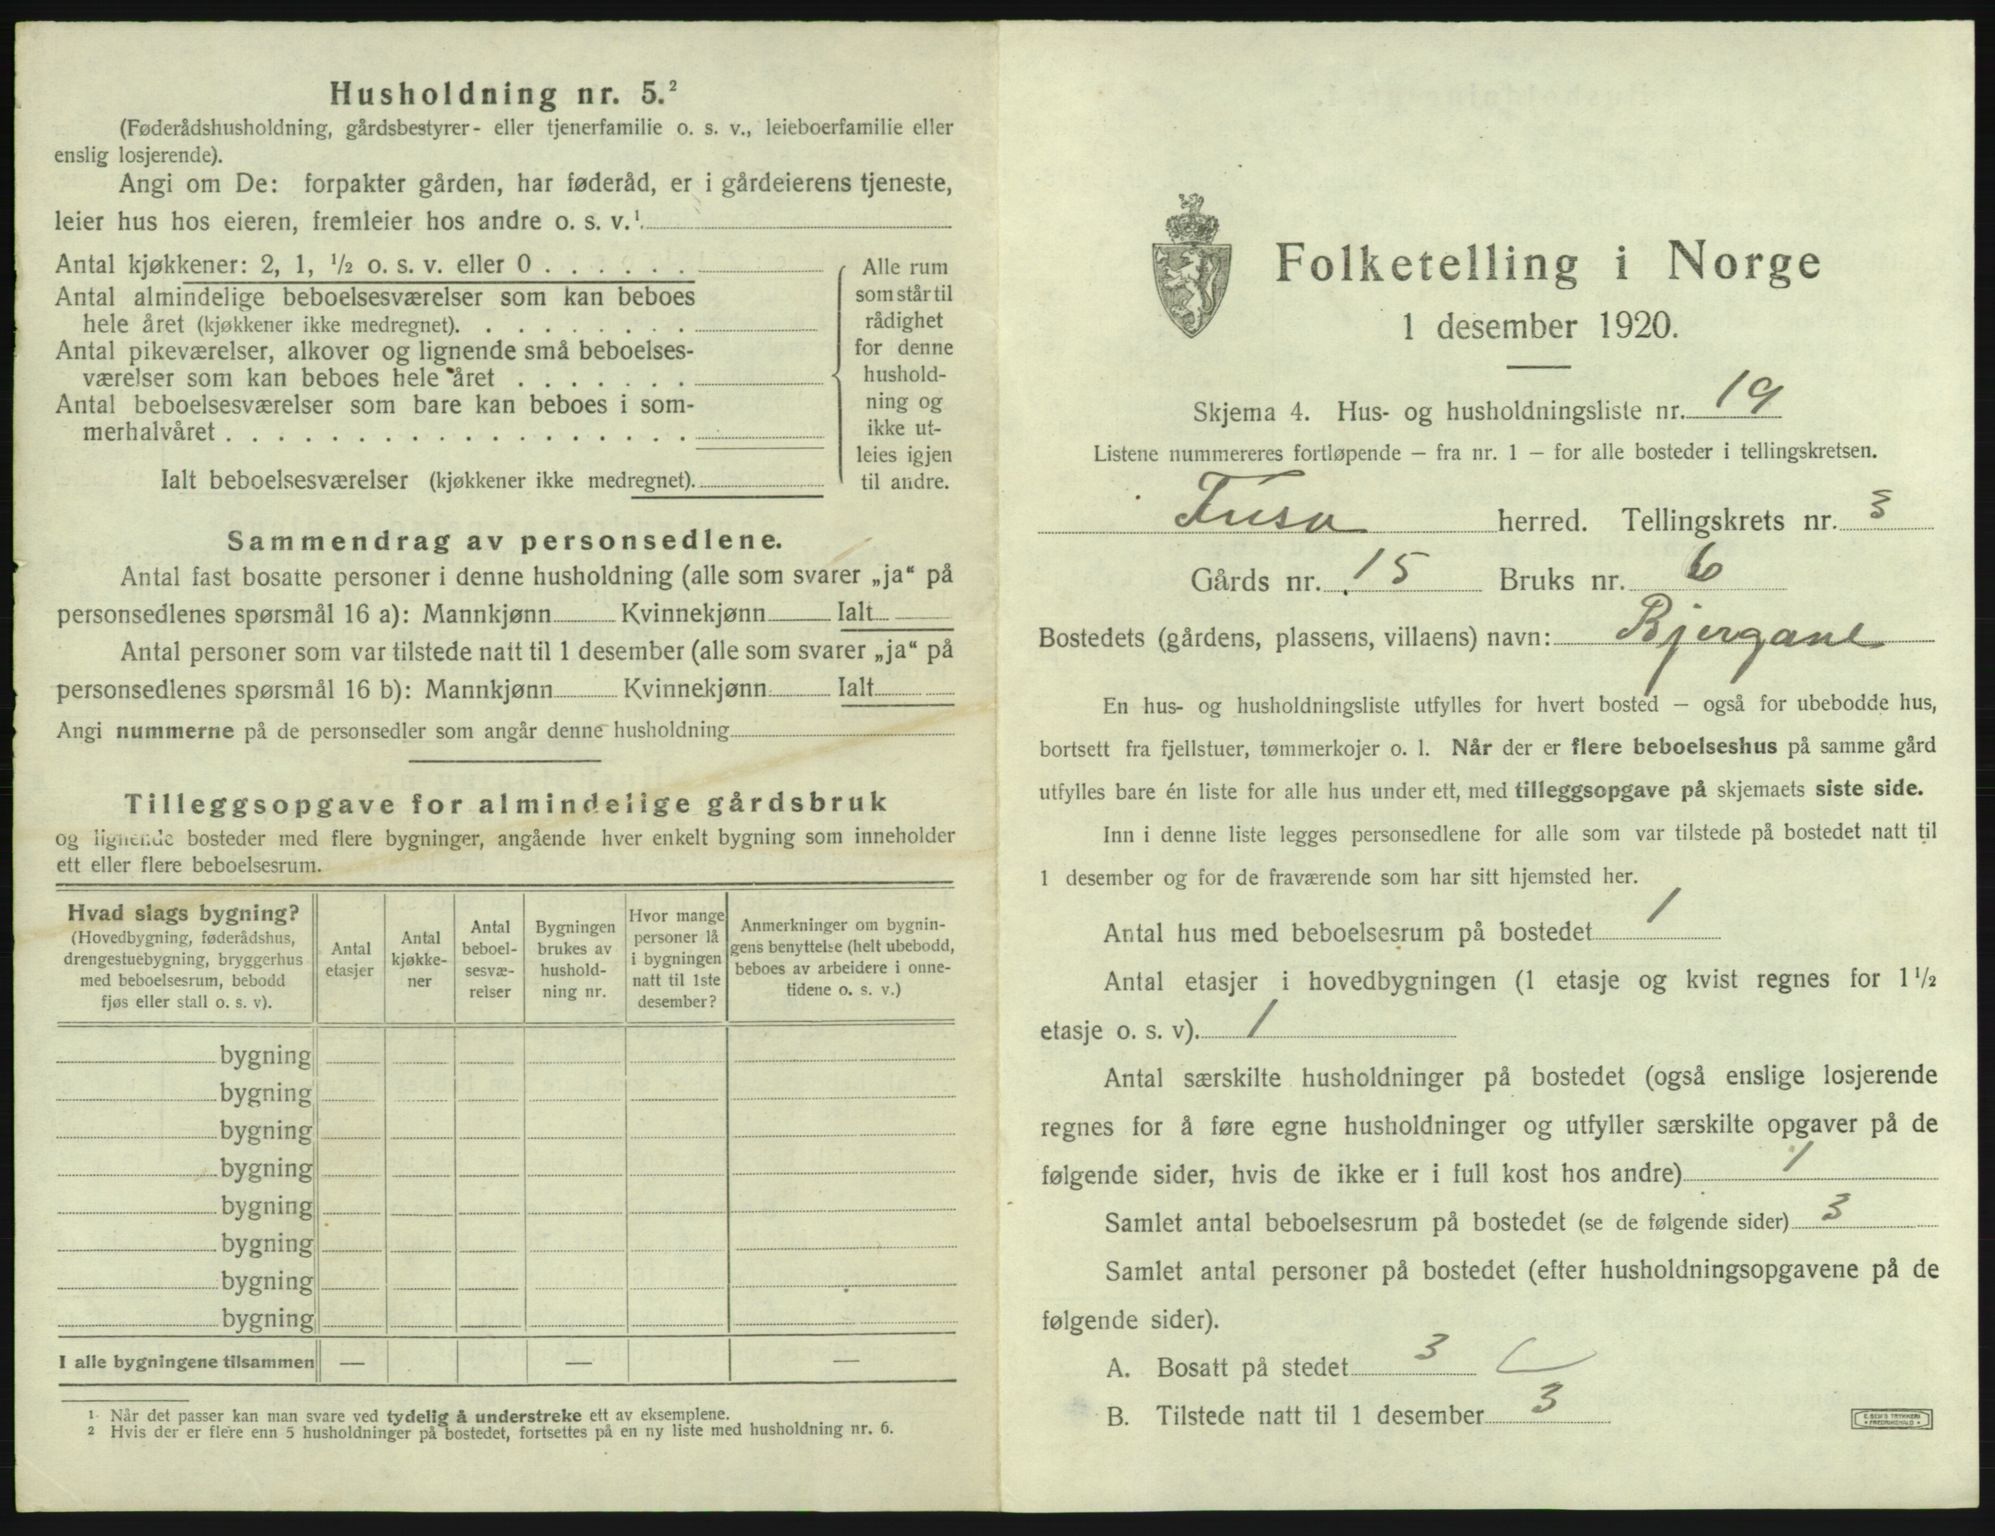 Husholdning nr. 5.²
(Føderådshusholdning, gårdsbestyrer- eller tjenerfamilie o. s. v., leieboerfamilie eller
enslig losjerende).
Angi om De: forpakter gården, har føderåd, er i gårdeierens tjeneste,
leier hus hos eieren, fremleier hos andre o. s. v.¹
Antal kjøkkener: 2, 1, ½ o. s. v. eller 0 . . . . . .
Antal almindelige beboelsesværelser som kan beboes
hele året (kjøkkener ikke medregnet). . . . . . . . .
Antal pikeværelser, alkover og lignende små beboelses-
værelser som kan beboes hele året . . . . . . .
Antal beboelsesværelser som bare kan beboes i som-
merhalvåret . . . . . . . . . . . . . . . . .
Ialt beboelsesværelser (kjøkkener ikke medregnet).
Alle rum
som står til
rådighet
for denne
hushold-
ning og
ikke ut-
leies igjen
til andre.
Sammendrag av personsedlene.
Antal fast bosatte personer i denne husholdning (alle som svarer „ja“ på
personsedlenes spørsmål 16 a): Mannkjønn Kvinnekjønn Ialt
Antal personer som var tilstede natt til 1 desember (alle som svarer „ja“ på
personsedlenes spørsmål 16 b): Mannkjønn Kvinnekjønn Ialt
Angi nummerne på de personsedler som angår denne husholdning
Tilleggsopgave for almindelige gårdsbruk
og lignende bosteder med flere bygninger, angående hver enkelt bygning som inneholder
ett eller flere beboelsesrum.
Hvad slags bygning?
(Hovedbygning, føderådshus,
drengestuebygning, bryggerhus
med beboelsesrum, bebodd
fjøs eller stall o. s. v).
Antal
etasjer
Antal
kjøkke-
ner
Antal
beboel-
sesvæ-
relser
Bygningen
brukes av
hushold-
ning nr.
Hvor mange
personer lå
i bygningen
natt til 1ste
desember?
Anmerkninger om bygnin-
gens benyttelse (helt ubebodd,
beboes av arbeidere i onne-
tidene o. s. v.)
bygning
bygning
bygning
bygning
bygning
bygning
bygning
bygning
I alle bygningene tilsammen — — —
¹ Når det passer kan man svare ved tydelig å understreke ett av eksemplene.
² Hvis der er flere enn 5 husholdninger på bostedet, fortsettes på en ny liste med husholdning nr. 6.
Folketelling i Norge
1 desember 1920.
Skjema 4. Hus- og husholdningsliste nr. 19
Listene nummereres fortløpende — fra nr. 1 — for alle bosteder i tellingskretsen.
Fusa herred. Tellingskrets nr. 3
Gårds nr. 15 Bruks nr. 6
Bostedets (gårdens, plassens, villaens) navn: Bjergane
En hus- og husholdningsliste utfylles for hvert bosted — også for ubebodde hus,
bortsett fra fjellstuer, tømmerkojer o. l. Når der er flere beboelseshus på samme gård
utfylles bare én liste for alle hus under ett, med tilleggsopgave på skjemaets siste side.
Inn i denne liste legges personsedlene for alle som var tilstede på bostedet natt til
1 desember og for de fraværende som har sitt hjemsted her.
Antal hus med beboelsesrum på bostedet 1
Antal etasjer i hovedbygningen (1 etasje og kvist regnes for 1½
etasje o. s. v). 1
Antal særskilte husholdninger på bostedet (også enslige losjerende
regnes for å føre egne husholdninger og utfyller særskilte opgaver på de
følgende sider, hvis de ikke er i full kost hos andre) 1
Samlet antal beboelsesrum på bostedet (se de følgende sider) 3
Samlet antal personer på bostedet (efter husholdningsopgavene på de
følgende sider).
A. Bosatt på stedet 3
B. Tilstede natt til 1 desember 3